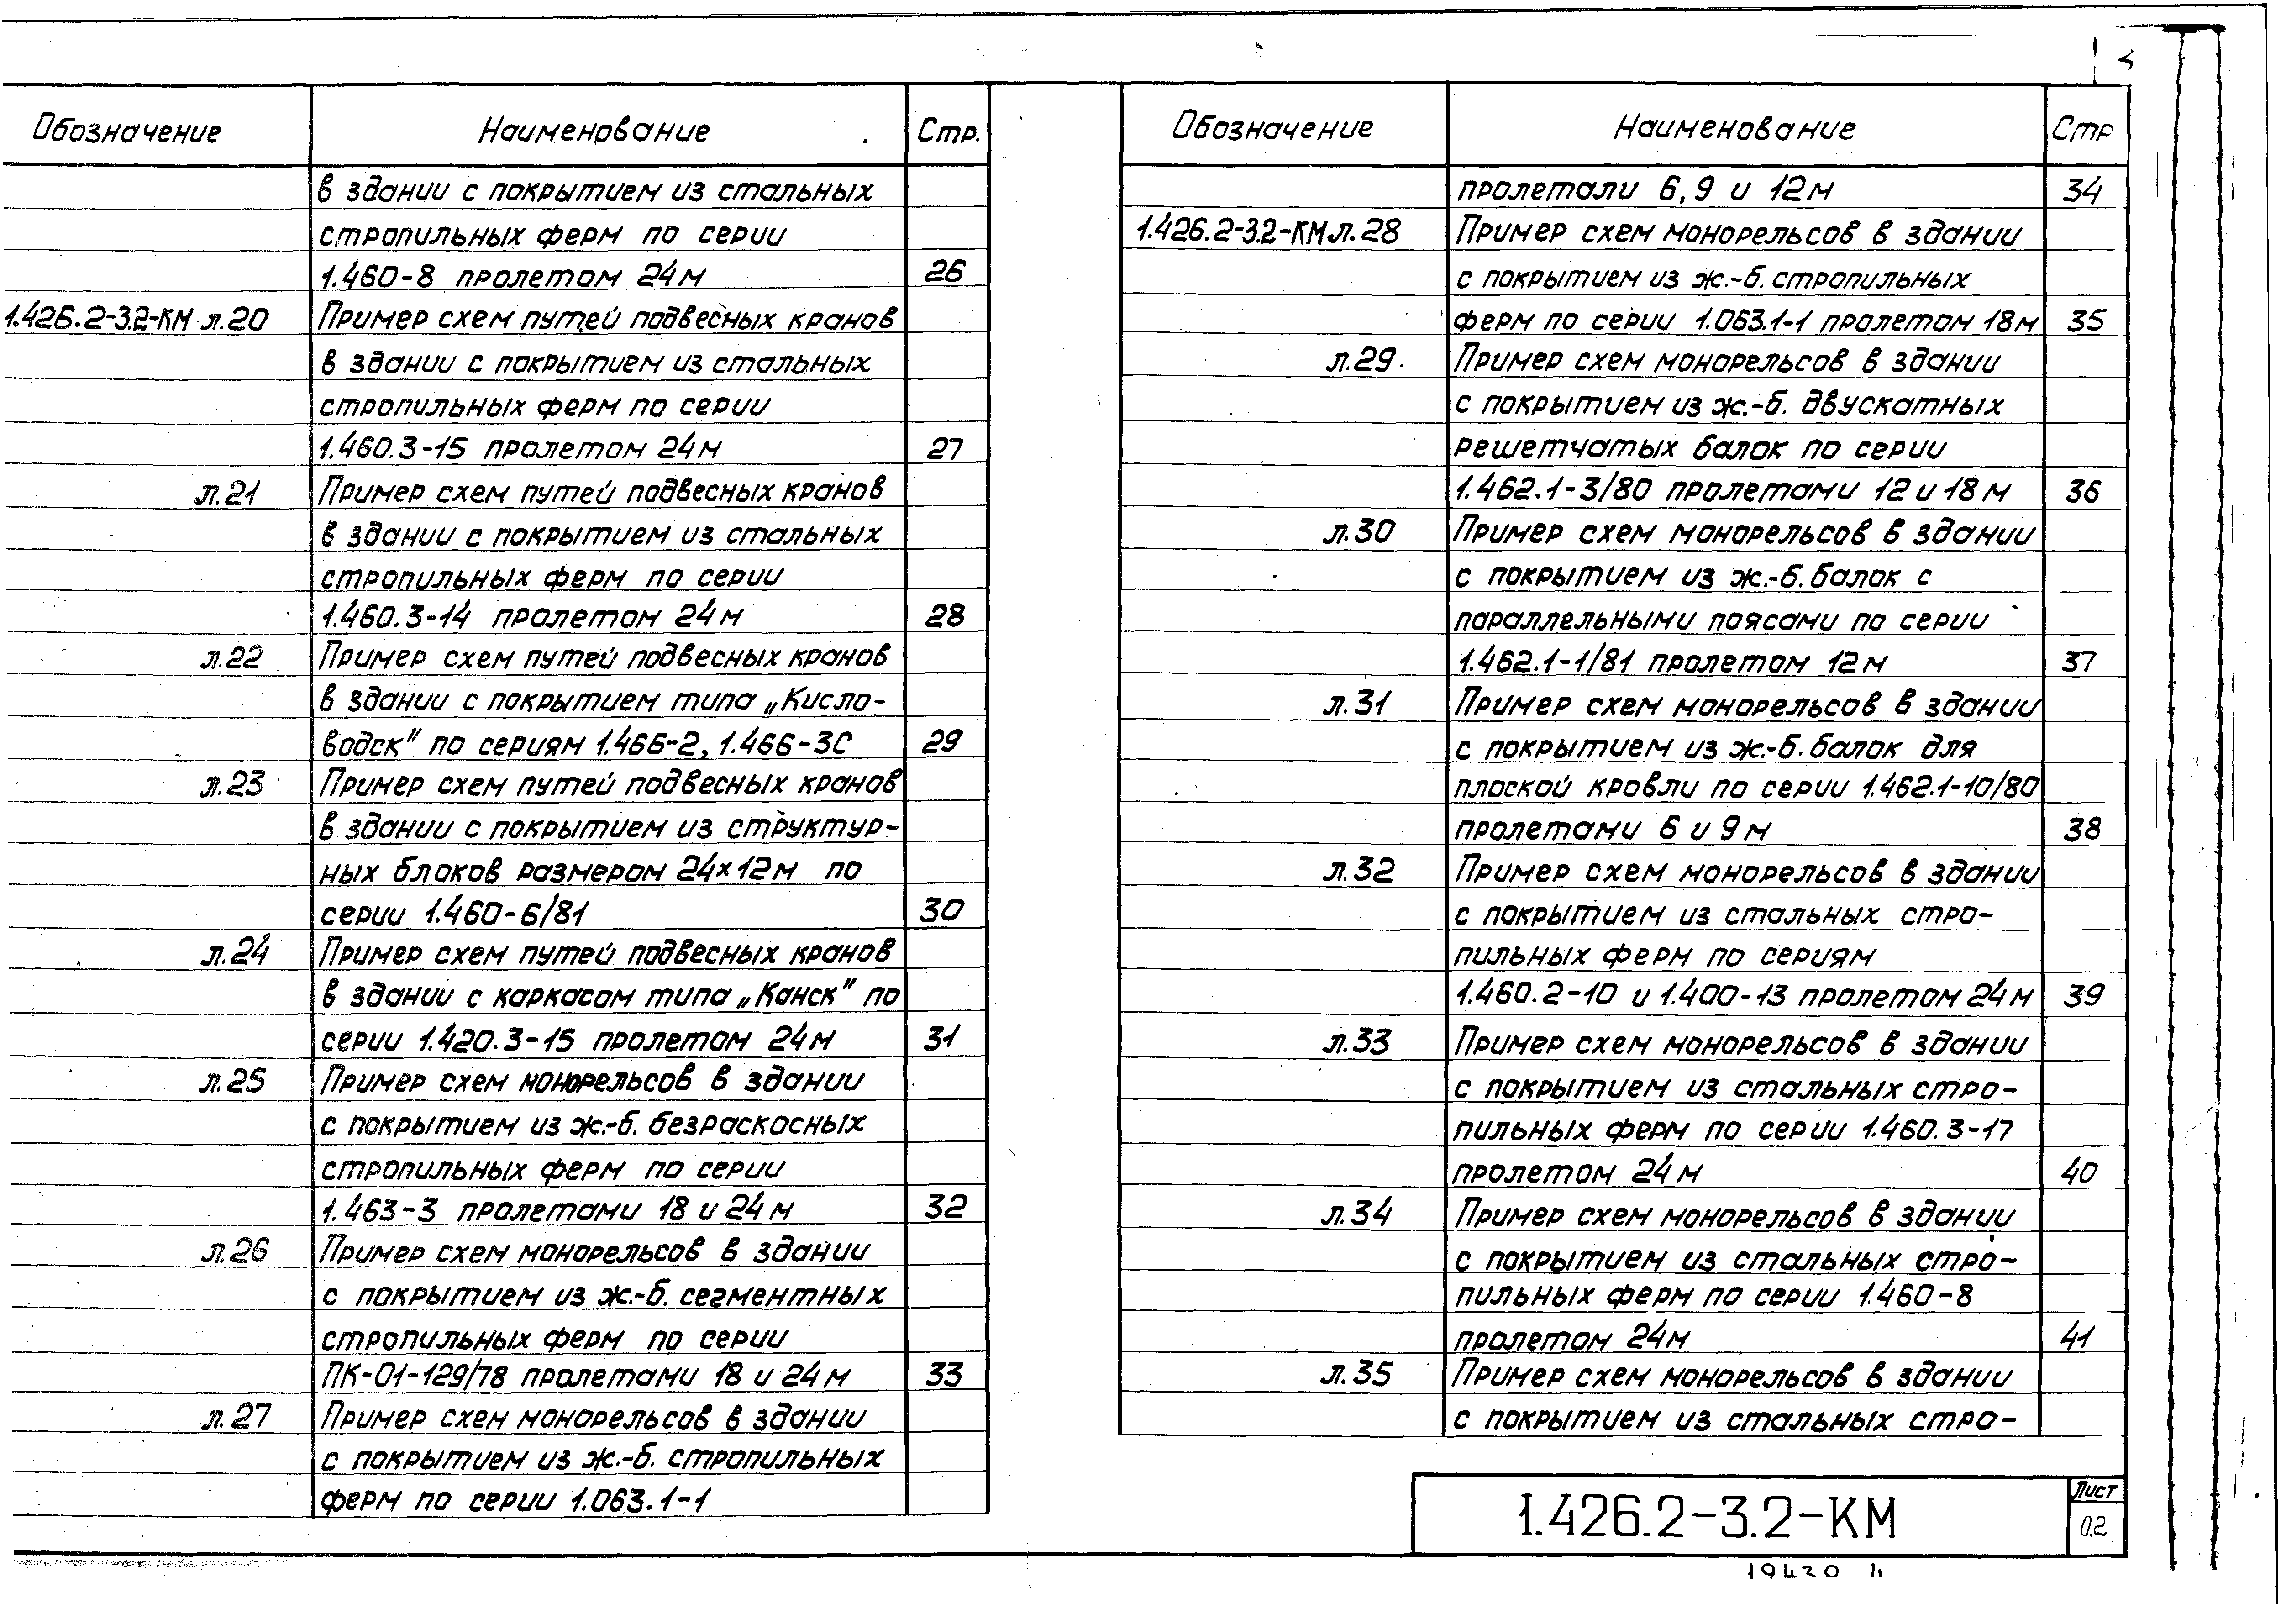 Обозначение Наименование Стр.
в здании с покрытием из стальных
стропильных ферм по серии
1.460-8 пролетом 24м 26
1.426.2-3.2-КМ л.20 Пример схем путей подвесных кранов
в здании с покрытием из стальных
стропильных ферм по серии
1.460.3-15 пролетом 24м 27
л.21 Пример схем путей подвесных кранов
в здании с покрытием из стальных
стропильных ферм по серии
1.460.3-14 пролетом 24м 28
л.22 Пример схем путей подвесных кранов
в здании с покрытием типа „Кисло-
водск" по сериям 1.466-2, 1.466-3С 29
л.23 Пример схем путей подвесных кранов
в здании с покрытием из структур-
ных блоков размером 24×12м по
серии 1.460-6/81 30
л.24 Пример схем путей подвесных кранов
в здании с каркасом типа „Канск" по
серии 1.420.3-15 пролетом 24м 31
л.25 Пример схем монорельсов в здании
с покрытием из ж.-б. безраскосных
стропильных ферм по серии
1.463-3 пролетами 18 и 24м 32
л.26 Пример схем монорельсов в здании
с покрытием из ж.-б. сегментных
стропильных ферм по серии
ПК-01-129/78 пролетами 18 и 24м 33
л.27 Пример схем монорельсов в здании
с покрытием из ж.-б. стропильных
ферм по серии 1.063.1-1
Обозначение Наименование Стр
пролетали 6,9 и 12м 34
1.426.2-3.2-КМ л.28 Пример схем монорельсов в здании
с покрытием из ж.-б. стропильных
ферм по серии 1.063.1-1 пролетом 18м 35
л.29 Пример схем монорельсов в здании
с покрытием из ж.-б. двускатных
решетчатых балок по серии
1.462.1-3/80 пролетами 12 и 18м 36
л.30 Пример схем монорельсов в здании
с покрытием из ж.-б. балок с
параллельными поясами по серии
1.462.1-1/81 пролетом 12м 37
л.31 Пример схем монорельсов в здании
с покрытием из ж.-б. балок для
плоской кровли по серии 1.462.1-10/80
пролетами 6 и 9м 38
л.32 Пример схем монорельсов в здании
с покрытием из стальных стро-
пильных ферм по сериям
1.460.2-10 и 1.400-13 пролетом 24м 39
л.33 Пример схем монорельсов в здании
с покрытием из стальных стро-
пильных ферм по серии 1.460.3-17
пролетом 24м 40
л.34 Пример схем монорельсов в здании
с покрытием из стальных стро-
пильных ферм по серии 1.460-8
пролетом 24м 41
л.35 Пример схем монорельсов в здании
с покрытием из стальных стро-
1.426.2-3.2-КМ
Лист
0.2